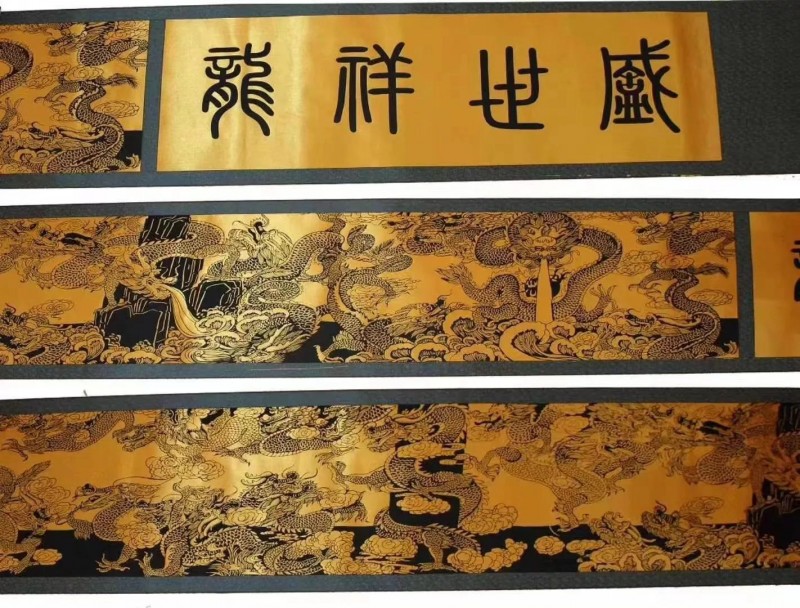 盛世祥龍